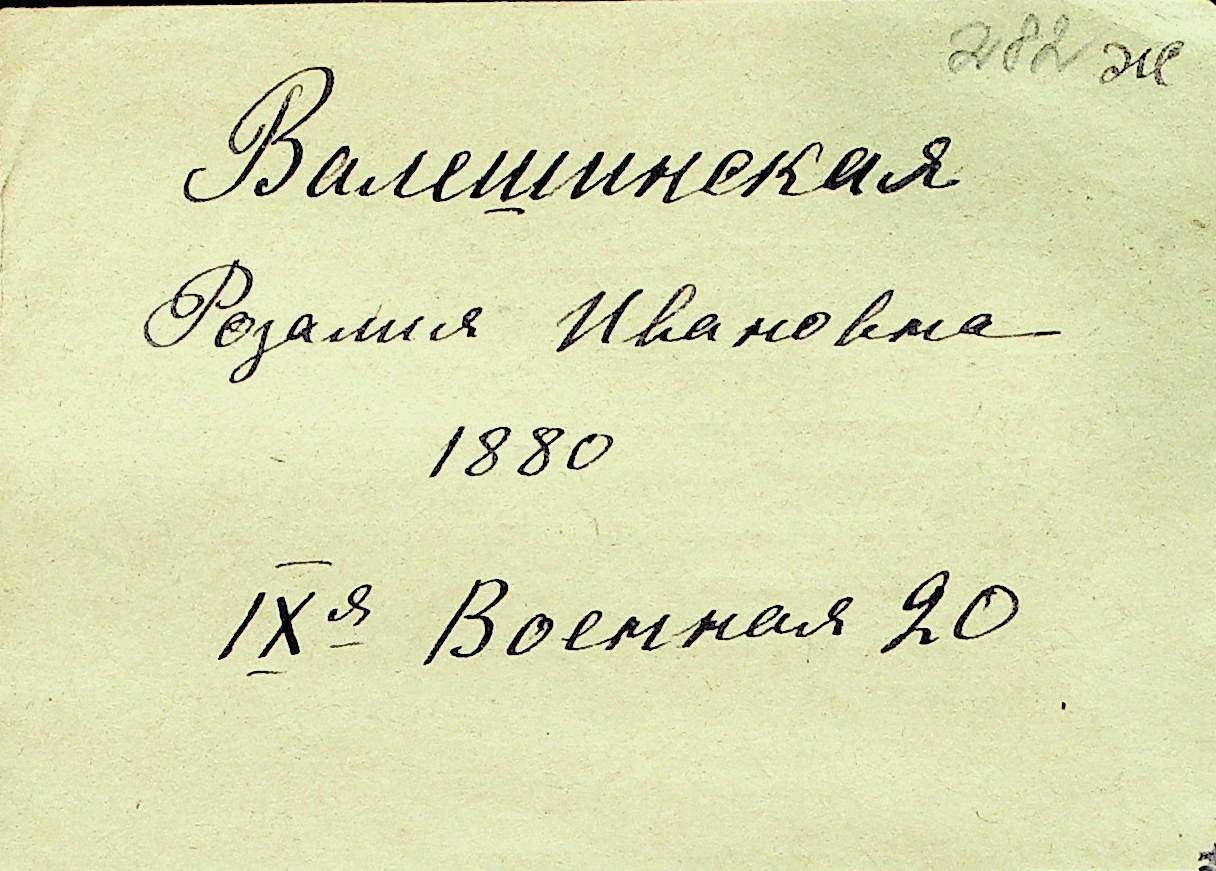 282 ж
Валешинская
Розалия Ивановна
1880
IXя Военная 20